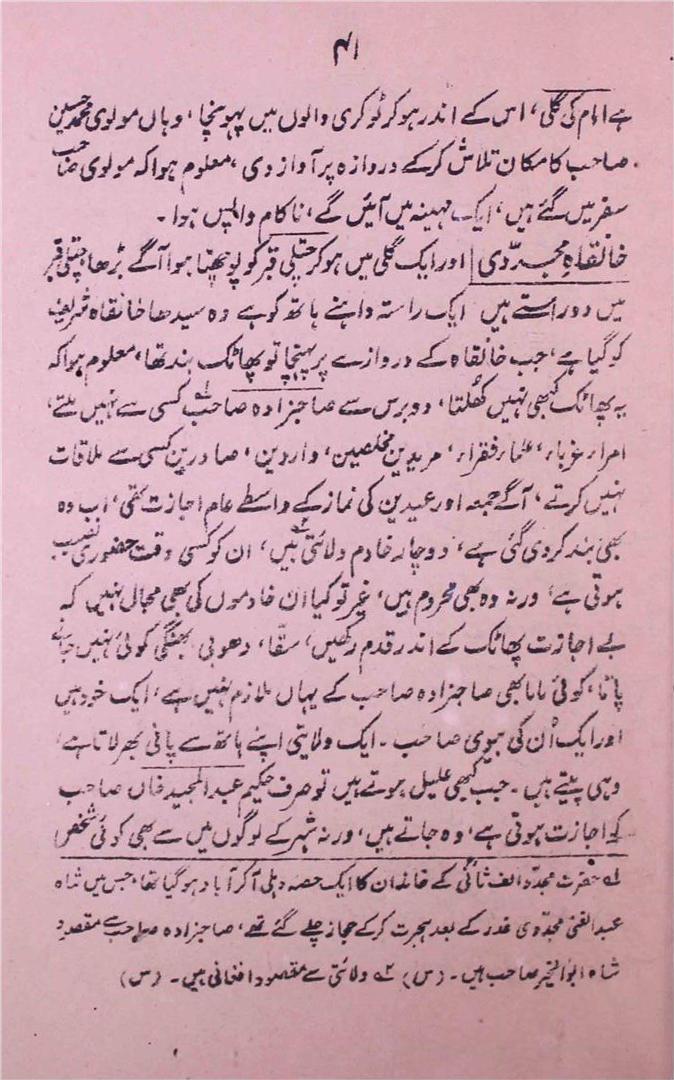 ۴۱
ہے امام کی گلی، اس کے اندر ہو کر ٹوکری والوں میں پہونچا، وہاں مولوی محمد حسین
صاحب کا مکان تلاش کر کے دروازہ پر آواز دی، معلوم ہوا کہ مولوی صاحب
سفر میں گئے ہیں، ایک مہینہ میں آئیں گے، ناکام واپس ہوا۔
خانقاہِ مجدّدی اور ایک گلی میں ہو کر چتلی قبر کو پوچھتا ہوا آگے بڑھا چتلی قبر
میں دو راستے ہیں ایک راستہ داہنے ہاتھ کو ہے وہ سیدھا خانقاہ شریف
کو گیا ہے، جب خانقاہ کے دروازے پر پہنچا تو پھاٹک بند تھا، معلوم ہوا کہ
یہ پھاٹک کبھی نہیں کھُلتا، دو برس سے صاحبزادہ صاحب۱ کسی سے نہیں ملتے،
امراء، غرباء، علماء، فقراء، مریدین مخلصین، واردین، صادرین کسی سے ملاقات
نہیں کرتے، آگے جمعہ اور عیدین کی نماز کے واسطے عام اجازت تھی، اب وہ
بھی بند کر دی گئی ہے، دو چار خادم ولائتی۲ ہیں، ان کو کسی وقت حضوری نصیب
ہوتی ہے، ورنہ وہ بھی محروم ہیں، غیر تو کیا ان خادموں کی بھی مجال نہیں کہ
بے اجازت پھاٹک کے اندر قدم رکھیں، سقّا، دھوبی بھنگی کوئی نہیں جانے
پاتا، کوئی ماما بھی صاحبزادہ صاحب کے یہاں ملازم نہیں ہے، ایک خود ہیں
اور ایک اُن کی بیوی صاحب۔ ایک ولایتی اپنے ہاتھ سے پانی بھر لاتا ہے،
وہی پیتے ہیں۔ جب کبھی علیل ہوتے ہیں تو صرف حکیم عبدالمجید خاں صاحب
کو اجازت ہوتی ہے، وہ جاتے ہیں، ورنہ شہر کے لوگوں میں سے بھی کوئی شخص
۱ حضرت مجدد الف ثانیؒ کے خاندان کا ایک حصہ دہلی آ کر آباد ہو گیا تھا، جس میں شاہ
عبدالغنی مجدّدی غدر کے بعد ہجرت کر کے حجاز چلے گئے تھے، صاحبزادہ صاحب سے مقصود
شاہ ابوالخیر صاحب ہیں۔ (س) ۲ ولائتی سے مقصود افغانی ہیں۔ (س)